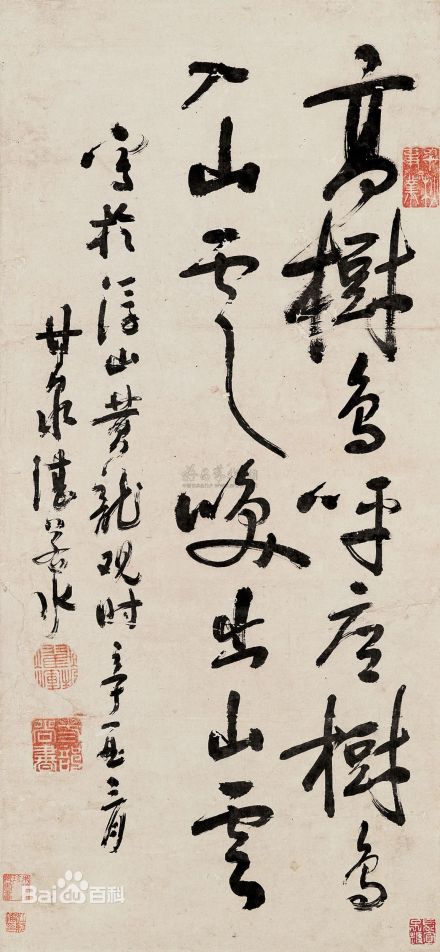 高樹鳥呼樹鳥
入山雲喚出山雲
寫於浮山黄龍观时辛三月
甘泉湛若水
Bai百科